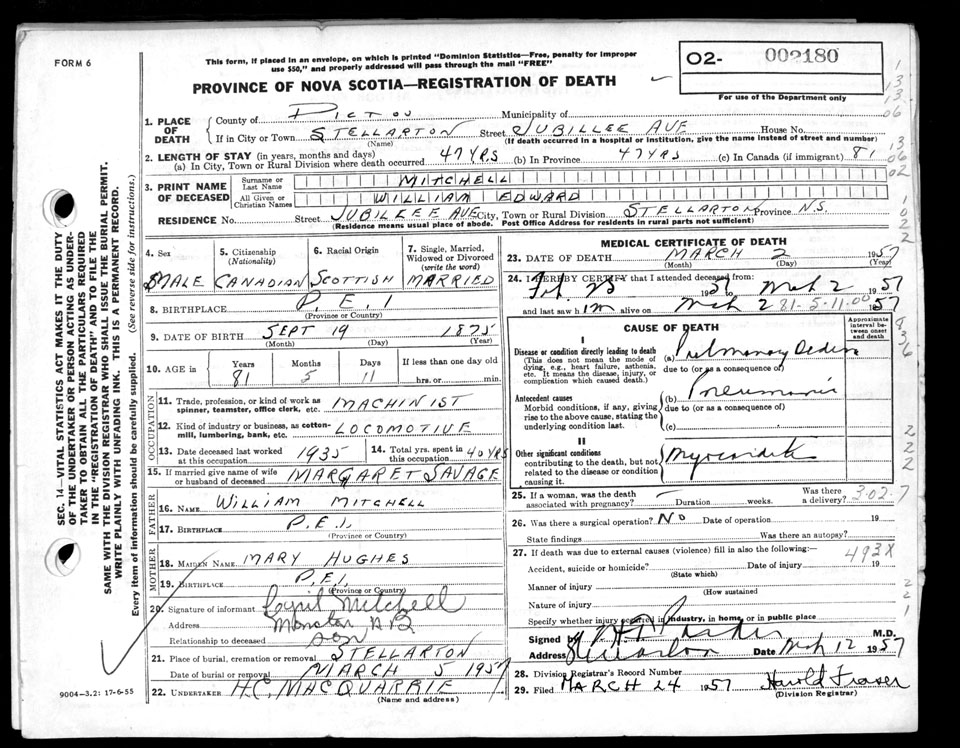 FORM 6
This form, if placed in an envelope, on which is printed "Dominion Statistics—Free, penalty for improper
use $50," and properly addressed will pass through the mail "FREE"
PROVINCE OF NOVA SCOTIA—REGISTRATION OF DEATH
02- 002180
For use of the Department
1. PLACE OF DEATH
County of PICTOU Municipality of
If in City or Town STELLARTON Street JUBILLEE AVE House No.
(Name) (If death occurred in a hospital or institution, give the name instead of street and number)
2. LENGTH OF STAY (in years, months and days)
(a) In City, Town or Rural Division where death occurred 47 YRS (b) In Province 47 YRS (c) In Canada (if immigrant) 81
3. PRINT NAME OF DECEASED
Surname or Last Name MITCHELL
All Given or Christian Names WILLIAM EDWARD
RESIDENCE No. Street JUBILLEE AVE City, Town or Rural Division STELLARTON Province N.S.
(Residence means usual place of abode. Post Office Address for residents in rural parts not sufficient)
4. Sex 5. Citizenship (Nationality) 6. Racial Origin 7. Single, Married, Widowed or Divorced (write the word)
MALE CANADIAN SCOTTISH MARRIED
8. BIRTHPLACE P.E.I
(Province or Country)
9. DATE OF BIRTH SEPT 19 1875
(Month) (Day) (Year)
10. AGE in Years Months Days If less than one day old
81 5 11 hrs. or min.
OCCUPATION
11. Trade, profession, or kind of work as
spinner, teamster, office clerk, etc. MACHINIST
12. Kind of industry or business, as cotton-
mill, lumbering, bank, etc. LOCOMOTIVE
13. Date deceased last worked at this occupation 1935 14. Total yrs. spent in this occupation 40 YRS
15. If married give name of wife
or husband of deceased MARGARET SAVAGE
FATHER
16. NAME WILLIAM MITCHELL
17. BIRTHPLACE P.E.I.
(Province or Country)
MOTHER
18. MAIDEN NAME MARY HUGHES
19. BIRTHPLACE P.E.I
(Province or Country)
20. Signature of informant Mitchell
Address Moncton NB
Relationship to deceased son
21. Place of burial, cremation or removal STELLARTON
Date of burial or removal MARCH 5 1957
22. UNDERTAKER H.C. MACQUARRIE
(Name and address)
MEDICAL CERTIFICATE OF DEATH
23. DATE OF DEATH MARCH 2 1957
(Month) (Day) (Year)
24. I HEREBY CERTIFY that I attended deceased from:
Feb 1957 to Mch 2 1957
and last saw him alive on Mch 2 81-5-11.00 1957
CAUSE OF DEATH
Approximate interval between onset and death
I
Disease or condition directly leading to death (a) Pulmonary Oedema
(This does not mean the mode of dying, e.g., heart failure, asthenia, etc. It means the disease, injury, or complication which caused death.)
due to (or as a consequence of)
Antecedent causes (b) Pneumonia
Morbid conditions, if any, giving rise to the above cause, stating the underlying condition last.
due to (or as a consequence of)
(c)
II
Other significant conditions
contributing to the death, but not related to the disease or condition causing it.
Myocarditis
25. If a woman, was the death associated with pregnancy? Duration weeks. Was there a delivery? 302.7
26. Was there a surgical operation? NO Date of operation 19
State findings Was there an autopsy?
27. If death was due to external causes (violence) fill in also the following:—
493X
Accident, suicide or homicide? Date of injury 19
(State which)
Manner of injury
(How sustained
Nature of injury
Specify whether injury occurred in industry, in home, or in public place
Signed by M.D.
Address Stellarton Date Mch 12 1957
28. Division Registrar's Record Number
29. Filed MARCH 24 1957 Harold Fraser
(Division Registrar)
9004—3.2: 17-6-55
SEC. 14—VITAL STATISTICS ACT MAKES IT THE DUTY
OF THE UNDERTAKER OR PERSON ACTING AS UNDER-
TAKER TO OBTAIN ALL THE PARTICULARS REQUIRED
IN THE "REGISTRATION OF DEATH" AND TO FILE THE
SAME WITH THE DIVISION REGISTRAR WHO SHALL ISSUE THE BURIAL PERMIT.
WRITE PLAINLY WITH UNFADING INK. THIS IS A PERMANENT RECORD.
Every item of information should be carefully supplied. (See reverse side for instructions.)